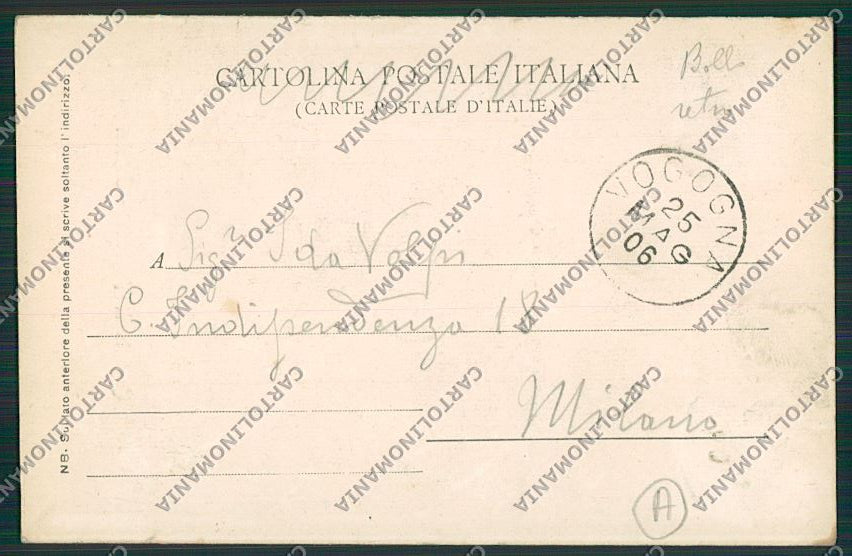 CARTOLINA POSTALE ITALIANA
(CARTE POSTALE D'ITALIE)
Bollo
retro
VOGOGNA
25
MAG
06
A Sig.ra Ida Volpi
C. Indipendenza 18
Milano
A
NB. Sul lato anteriore della presente si scrive soltanto l'indirizzo.
CARTOLINOMANIA